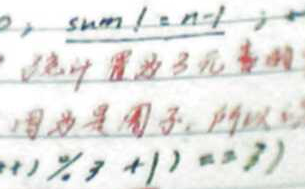 0; sum ! = n-1 ;
统计置为3元素的
因为是圈子,所以
++) % 3 + 1) == 3)